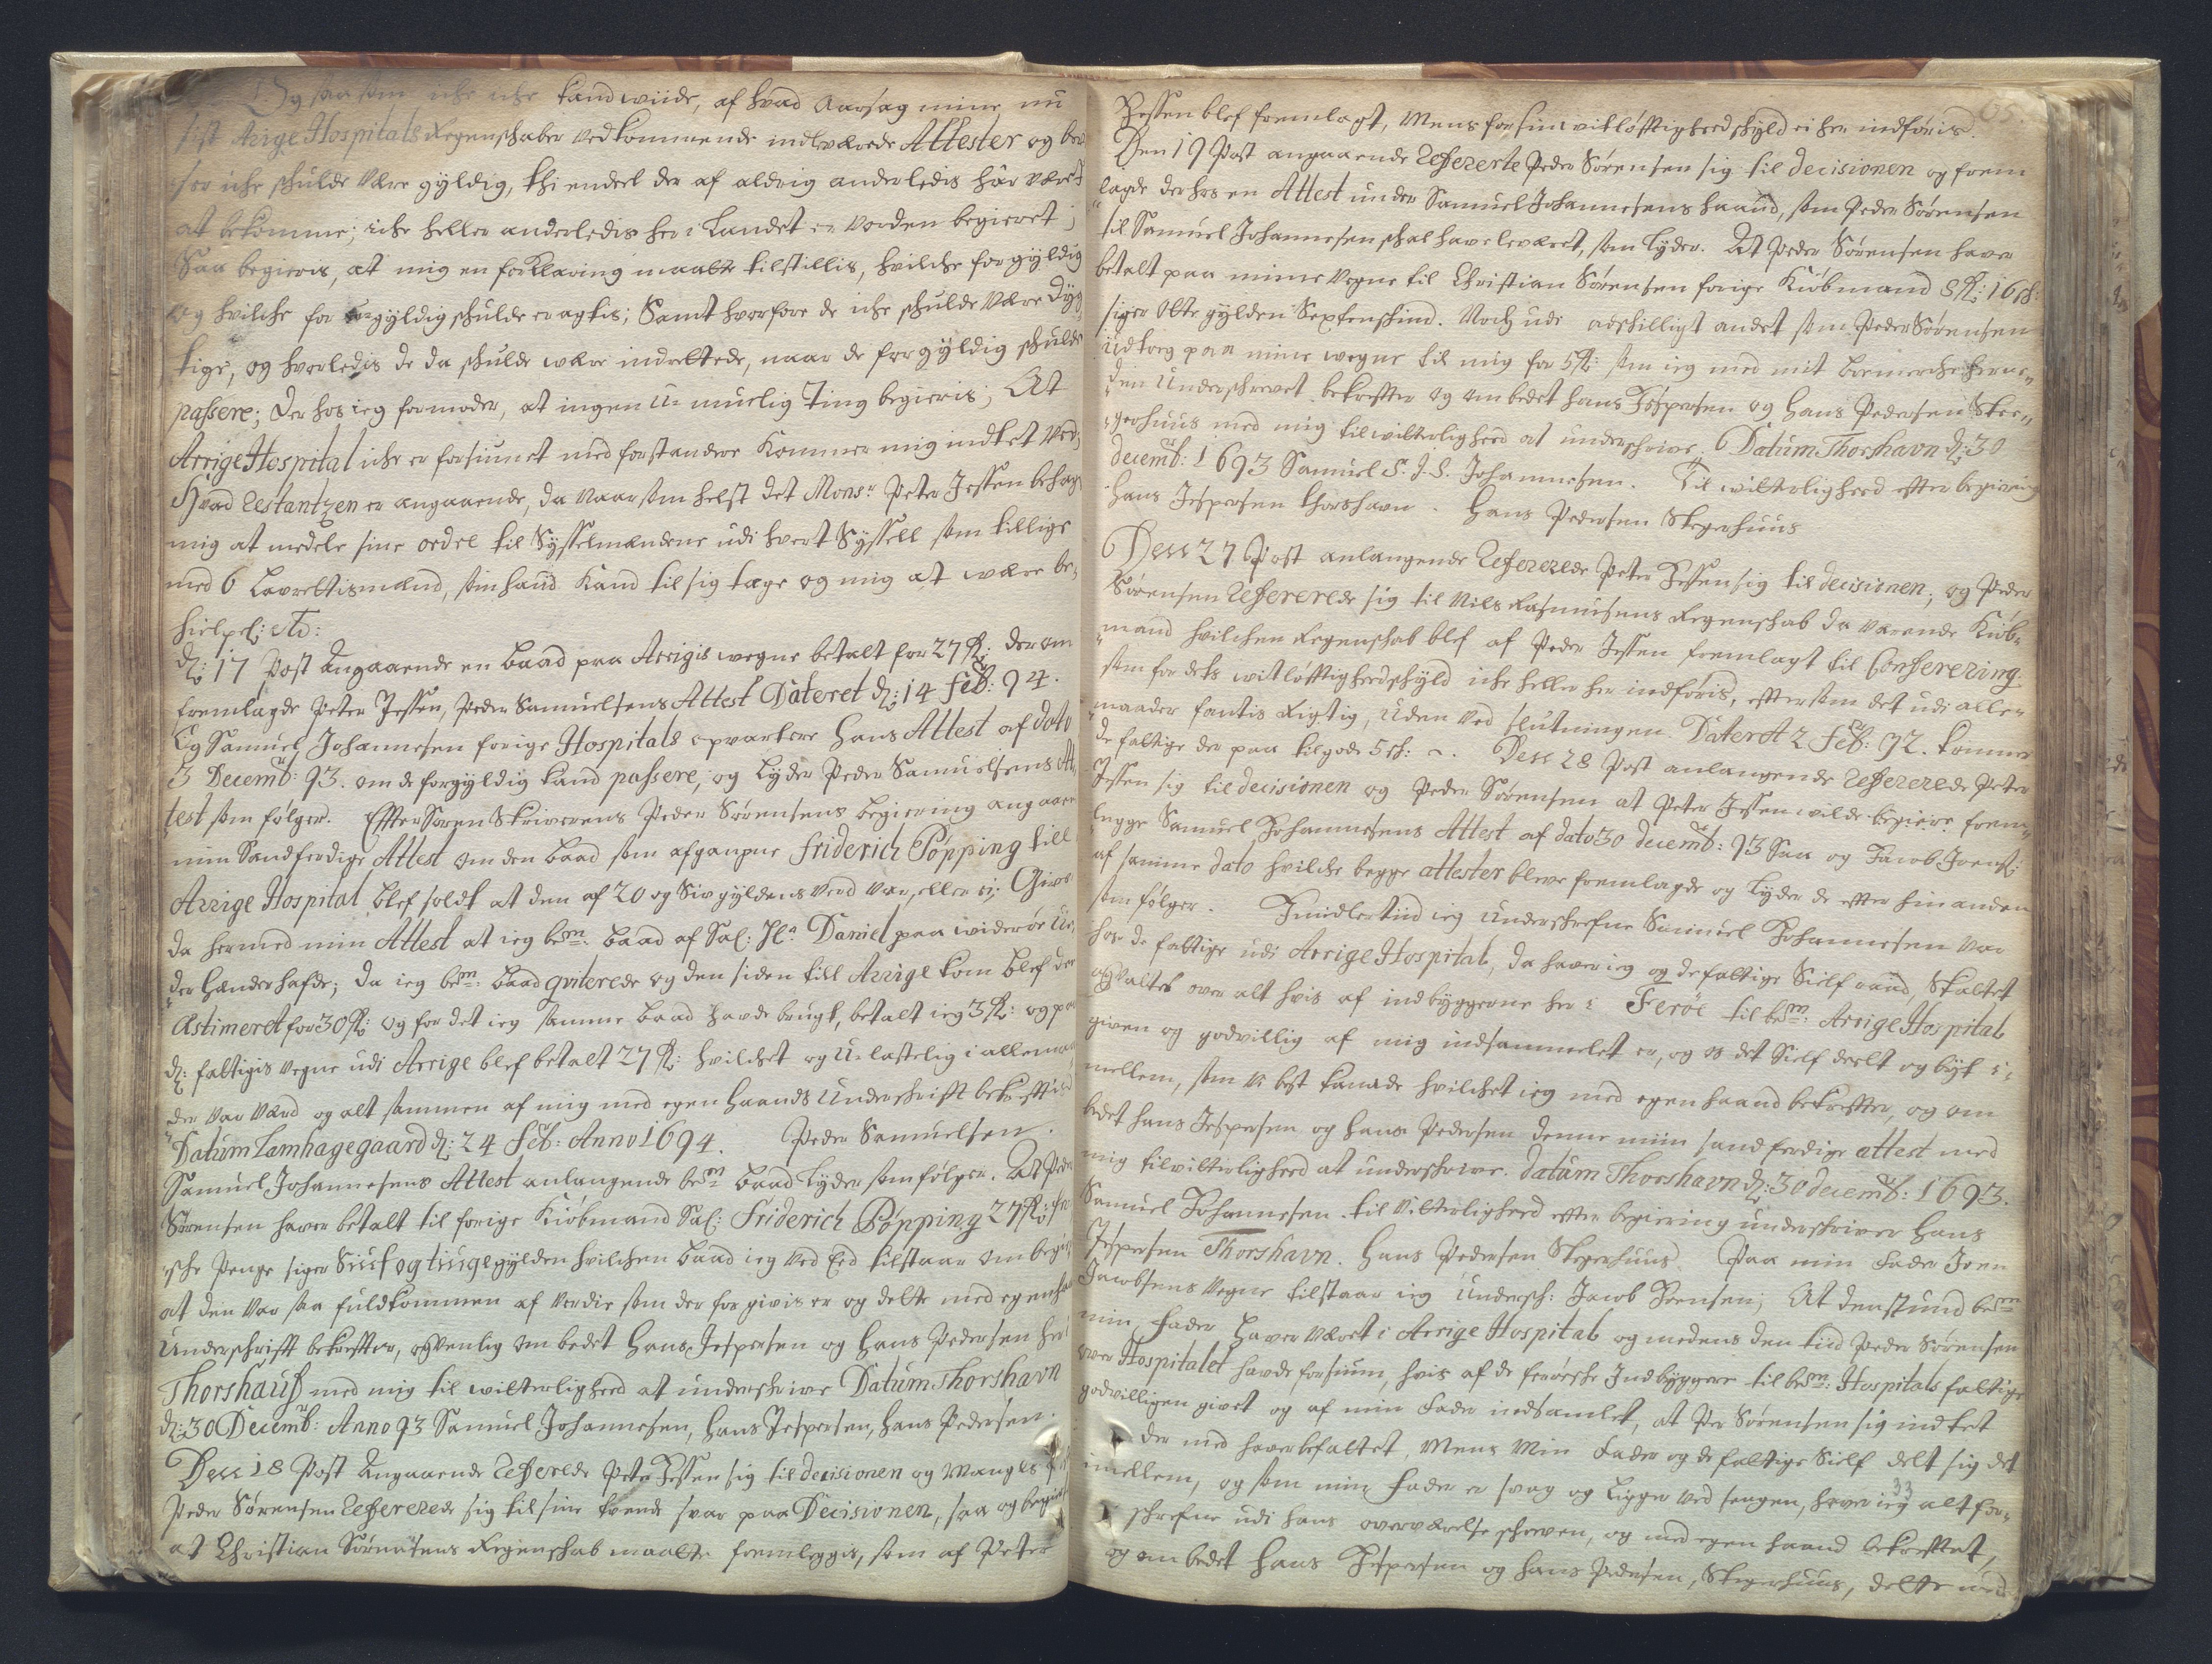 Og saa som iche iche kand wiide, af hvad Aarsag mine nu
sist Arige Hospitals Regenschaber vedkommende indleverede Attester og bev
ser iche schulde være gyldig, thi endeel der af aldrig anderledis har været
at bekomme; iche heller anderledis her i Landet er vorden begieret;
Saa begieris, at mig en forklaring maatte tilstillis, hvilche for gyldig
og hvilche for u-gyldig schulde eragtis; Samt hvorfore de iche schulde være dyg
tige, og hvorledis de da schulde være indrettede, naar de for gyldig schulde
passere; Der hos ieg formoder, at ingen u-muelig Ting begieris; At
Arrige Hospital iche er forsiunet med forstandere kommer mig indtet ved;
Hvad Restantzen er angaaende, da naar som helst det Monsr Peter Jessen behag
mig at meddele sine ordre til Sysselmændene udi hvert Syssell som tillige
med 6 Lavrettismænd, som hand kand til sig tage og mig at være be-
hielpel: etc:
d: 17 Post Angaaende en Baad paa Arrigis wegne betalt for 27 fl: der om
fremlagde Peter Jessen, Peder Samuelsens Attest Dateret d: 14 Feb: 94.
Og Samuel Johannesen forige Hospitals opvartere hans Attest af dato
3 Decemb: 93. om de forgyldig kand passere, og lyder Peder Samuelsens At-
test som følger. Effter Soren Skriverens Peder Sørensens begiering angaaen
min Sandferdige Attest om den Baad som afgangne Friderich Pøpping till
Arrige Hospital blef soldt at den af 20 og Siv gyldens verd var, eller ei; Gives
da hermed min Attest at ieg bem: Baad af Sal: Hr Daniel paa widerøe un-
der hænder hafde; da ieg bem: Baad qviterede og den siden till Arrige kom blef der
Æstimeret for 30 fl: og for det ieg samme Baad hafde brugt, betalt ieg 3 fl: og paa
d: fattigis vegne udi Arrige blef betalt 27 fl: hvilchet og u-lastelig i alle maa
der var værd og alt sammen af mig med egen haands underschrifft bekrefftis
Datum Lamhagegaard d: 24 Feb: Anno 1694. Peder Samuelsen.
Samuel Johannesens Attest anlangende bem Baad lyder som følger. At Peder
Sørensen haver betalt til forige Kiøbmand Sal: Friderich Pøpping 27 fl:
sche Penge siger Siuf og tiuge gylden hvilchen Baad ieg ved Eed tilstaar om begie
at den var saa fuldkommen af verdie som der for givis er og dette med egen ha
Underschrifft bekreffter, og venlig om bedet Hans Jespersen og Hans Pedersen her i
Thorshauf med mig til witterlighed at underschrive Datum Thorshavn
d: 30 Decemb: Anno 93 Samuel Johannesen, Hans Jespersen, Hans Pedersen.
Den 18 Post Angaaende Refferede Peter Jessen sig til decisionen og
Peder Sørensen Reffererede sig til sine svar paa Decisionen, saa og begier
at Christian Sørensens Regenschab maatte fremleggis, som af Peter
Jessen blef fremlagt, Mens for sin witløfftigheed schyld ei her indføris.
Den 19 Post angaaende Refererte Peder Sørensen sig til decisionen og frem
lagde der hos en Attest under Samuel Johannesens haand, som Peder Sørensen
til Samuel Johannesen schal have leveret, som lyder. At Peder Sørensen haver
betalt paa mine vegne til Christian Sørensen forige Kiøbmand 8 fl: 16 sch:
siger Otte gylden Sextenschind. Noch udi adschilligt andet som Peder Sørensen
udtoeg paa mine wegne til mig for 5 fl: som ieg med mit boemerche herne-
den Underschrevet bekreffter og ombedet hans Jespersen og Hans Pedersen Ske-
gerhuus med mig til witterligheed at underschrive. Datum Thorshavn d: 30
decemb: 1693 Samuel S. I. S. Johannesen. Til witterligheed efter begiering
Hans Jespersen thorshavn. Hans Pedersen Skegerhuus
Den 27 Post anlangende Reffererede Peter Jessen sig til decisionen; og Peder
Sørensen Reffererede sig til Nils Rasmusens Regenschab da værende Kiøb-
mand hvilchen Regenschab blef af Peder Jessen fremlagt til Conferering
som for dets witløfftigheedschyld iche heller her indføris, effter som det udi alle
maader fantis Rigtig, uden ved slutningen. Dateret 2 Feb: 92. kommer
de fattige der paa tilgode 5 sch: Den 28 Post anlangende Reffererede Peter
Jessen sig til decisionen og Peder Sørensen at Peter Jessen wilde begiere frem-
legge Samuel Johannesens Attest af dato 30 decemb: 93 Saa og Jacob Joens:
af samme dato hvilche begge attester bleve fremlagde og lyder de efter hin anden
som følger. Imidlertiid ieg Underschrefne Samuel Johannesen var
hos de fattige udi Arrige Hospital, da haver ieg og de fattige Sielf raad, Skaltet
og valtet over alt hvis af indbyggerne her i Ferøe til bem: Arrige Hospital
given og godvillig af mig indsammelet er, og os det Sielf deelt og bytt i-
mellem, som vi best kunde hvilchet ieg med egen haand bekreffter, og om
bedet Hans Jespersen og Hans Pedersen denne min sandferdige attest med
mig til witterligheed at underschrive. datum Thorshavn d: 30 decemb: 1693.
Samuel Johannesen. til Vitterligheed efter begiering underschriver Hans
Jespersen Thorshavn. Hans Pedersen Skegerhuus Paa min Fader Joen
Jacobsens Vegne tilstaar ieg Undersch: Jacob Joensen; At den stund bem
min Fader haver været i Arrige Hospital og medens den tiid Peder Sørensen
over Hospitalet hafde forsiun, hvis af de ferøesche Indbyggere til bem: Hospitals fattige
godvilligen givet og af min Fader indsamlet, at Per Sørensen sig indtet
der med haver befattet, Mens Min Fader og de fattige Sielf delt sig det
imellem, og som min Fader er svag og ligger ved sengen, haver ieg alt for-
schrefne udi hans overværelse schreven, og med egen haand bekrefftet,
og ombedet Hans Jespersen og Hans Pedersen, Skegerhuus, dette med
33